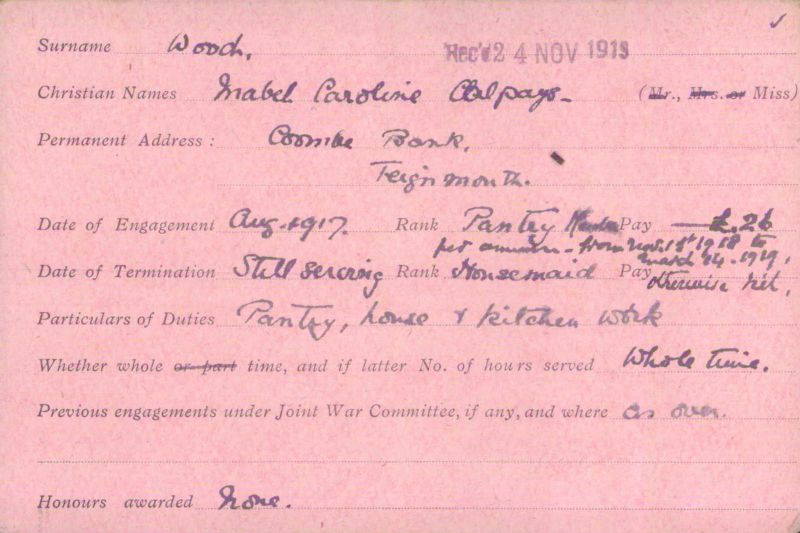 Surname Wood.
Rec'd 24 NOV 1919
Christian Names Mabel Caroline (Mr., Mrs. or Miss)
Permanent Address: Coombe Bank,
Teignmouth.
Date of Engagement Aug. 1917. Rank Pantry Pay £.26
per annum - from Nov. 1st 1918 to
March 14 - 1919,
Date of Termination Still serving Rank Housemaid Pay otherwise nil,
Particulars of Duties Pantry, house & kitchen work
Whether whole or part time, and if latter No. of hours served Whole time.
Previous engagements under Joint War Committee, if any, and where as over.
Honours awarded None.